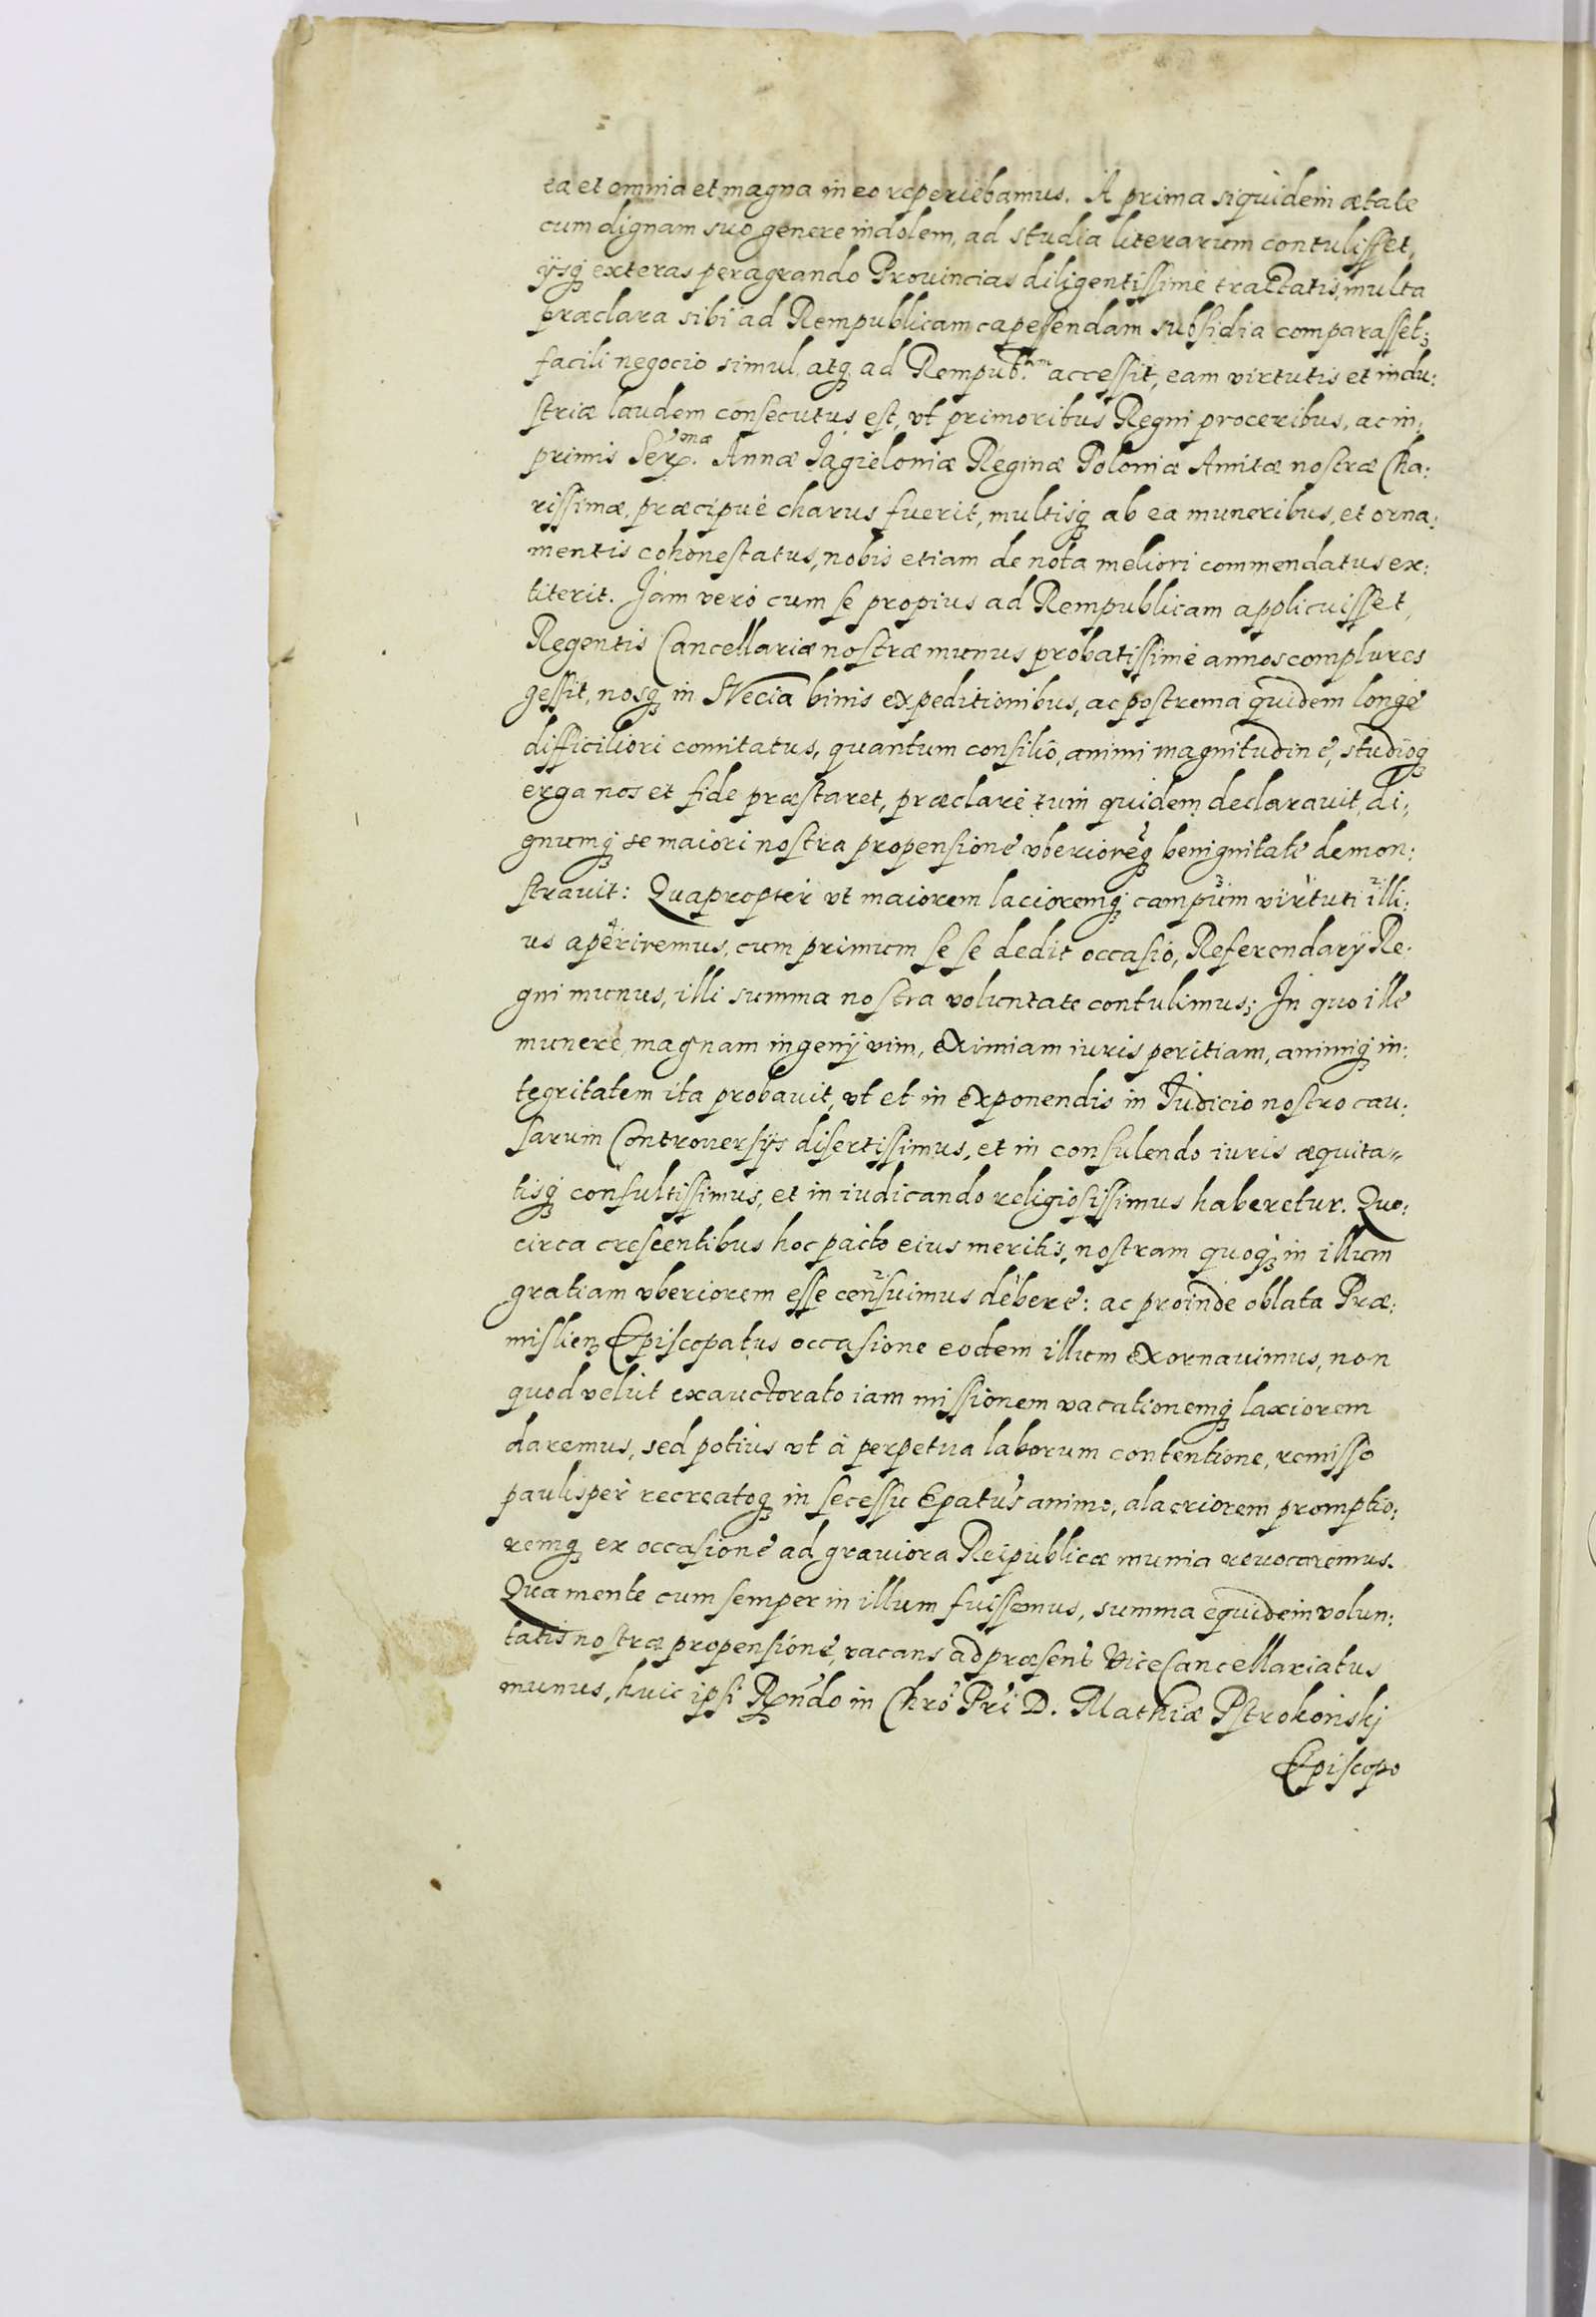 ta et omnia et magna in eo reperiebamus. A prima siquidem ætate
cum dignam suo genere indolem, ad studia literarum contulisset,
ijsq; exteras peragrando Prouincias diligentissimè tractatis, multa
præclara sibi ad Rempublicam capessendam subsidia comparasset;
facili negocio simul atq; ad Rempub:cam accessit, eam virtutis et indu:
striæ laudem consecutus est, vt primoribus Regni proceribus, ac in:
primis Ser.mæ Annæ Jagieloniæ Reginæ Poloniæ Amitæ nostræ Cha:
rissimæ, præcipuè charus fuerit, multisq; ab ea muneribus, et orna:
mentis cohonestatus, nobis etiam de nota meliori commendatus ex:
titerit. Jam verò cum se propius ad Rempublicam applicuisset,
Regentis Cancellariæ nostræ munus probatissimè annos complures
gessit, nosq; in Svecia binis expeditionibus, ac postrema quidem longè
difficiliori comitatus, quantum consilio, animi magnitudine, studioq;
erga nos et fide præstaret, præclarè tum quidem declarauit, di:
gnumq; se maiori nostra propensione vberioreq; benignitate demon:
strauit: Quapropter vt maiorem lacioremq; campum virtuti illi:
us aperiremus, cum primum se se dedit occasio, Referendarij Re:
gni munus, illi summa nostra voluntate contulimus; In quo ille
munere, magnam ingenij vim, eximiam iuris peritiam, animiq; in:
tegritatem ita probauit, vt et in exponendis in Judicio nostro cau:
sarum Controuersijs disertissimus, et in consulendo iuris æquita=
tisq; consultissimus, et in iudicando religiosissimus haberetur. Quo:
circa crescentibus hoc pacto eius meritis, nostram quoq; in illum
gratiam vberiorem esse censuimus debere: ac proinde oblata Præ:
mislien; Episcopatus occasione eodem illum exornauimus, non
quod velut exauctorato iam missionem vacationemq; laxiorem
daremus, sed potius vt à perpetua laborum contentione, remisso
paulisper recreatoq; in secessu Epatus animo, alacriorem promptio:
remq; ex occasione ad grauiora Reipublicæ munia reuocaremus.
Qua mente cum semper in illum fuissemus, summa equidem volun:
tatis nostræ propensione, vacans ad præsens ViceCancellariatus
munus, huic ipsi Rndo in Chro Pri D. Mathiæ Pstrokoński
Episcopo